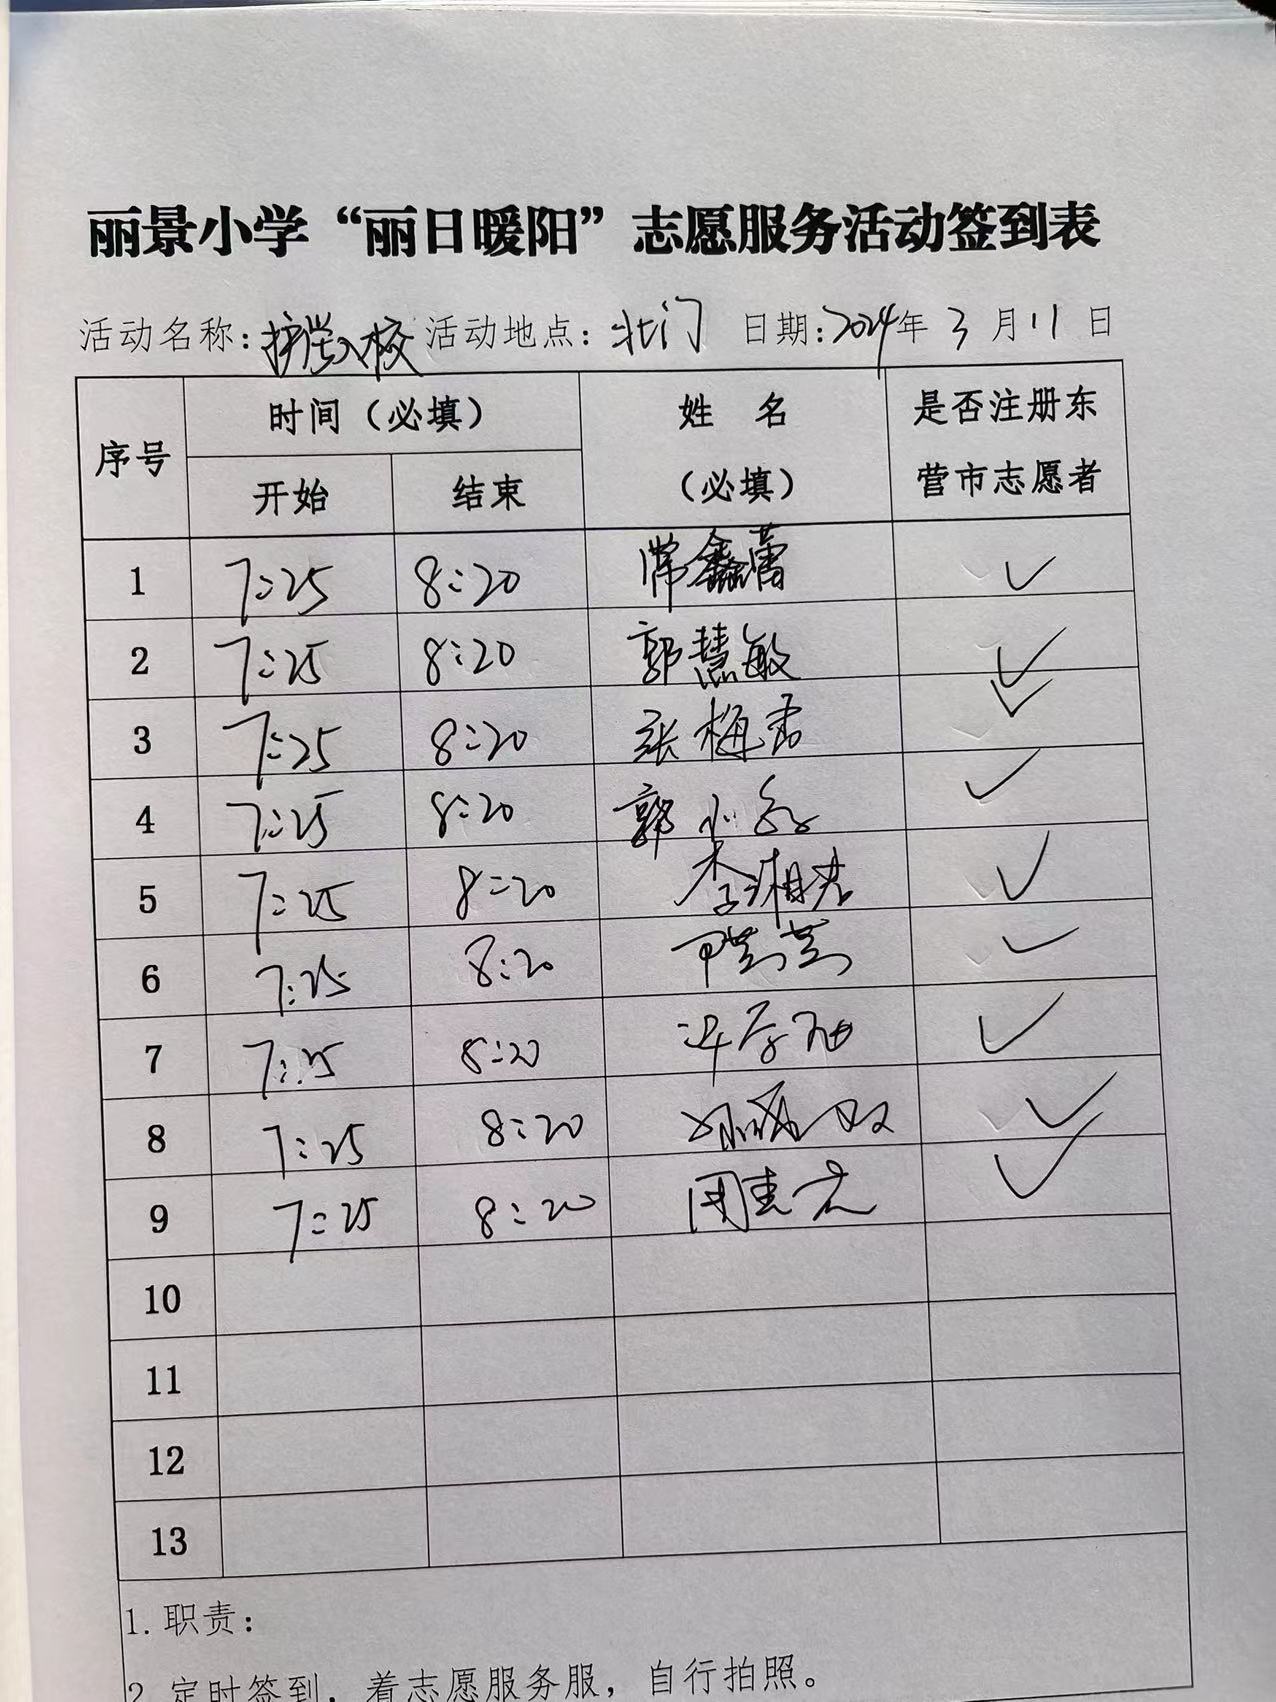 丽景小学“丽日暖阳”志愿服务活动签到表
活动名称:护学入校 活动地点:北门 日期:2024年3月11日
序号 时间（必填） 姓 名（必填） 是否注册东营市志愿者
开始 结束
1 7:25 8:20 常鑫蕾 ✓
2 7:25 8:20 郭慧敏 ✓
3 7:25 8:20 张梅 ✓
4 7:25 8:20 郭小 ✓
5 7:25 8:20 李湘君 ✓
6 7:25 8:20 ✓
7 7:25 8:20 ✓
8 7:25 8:20 ✓
9 7:25 8:20 ✓
10
11
12
13
1.职责:
2.定时签到，着志愿服务服，自行拍照。